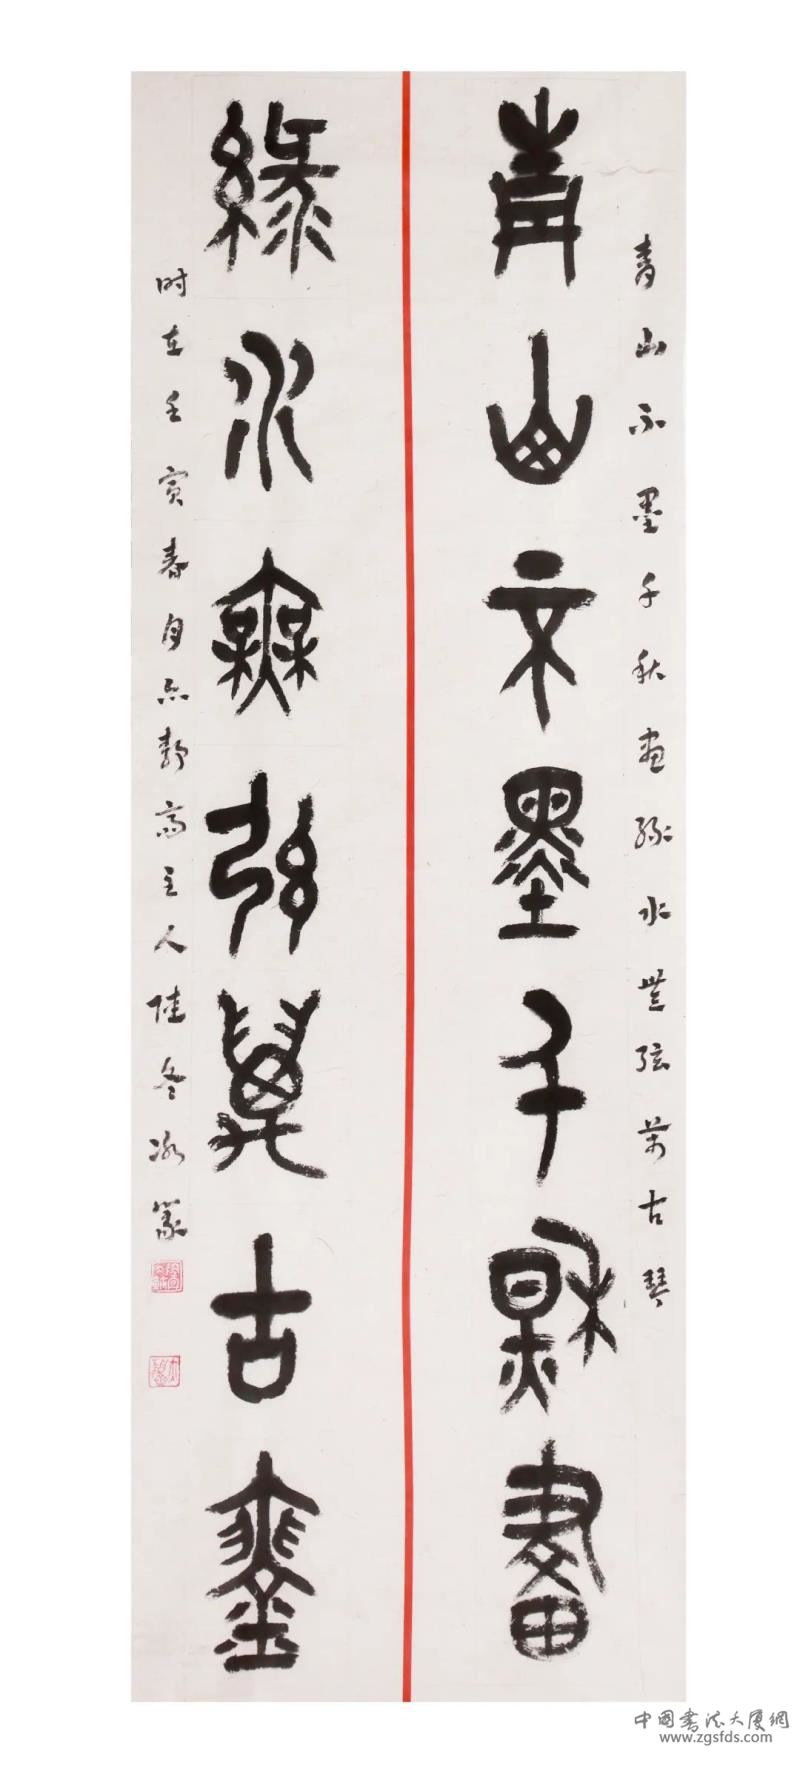 青山不墨千秋畫
青山不墨千秋画绿水無弦萬古琴
緑水無弦萬古琴
时在壬寅春月 静斋主人陆冬冰篆
中国书法大厦网
www.zgsfds.com